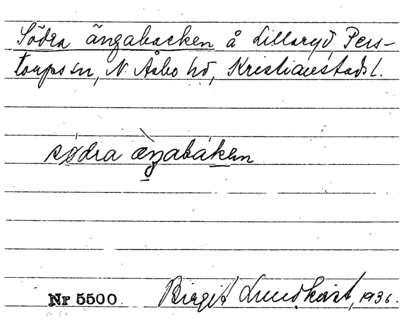 Södra ängabacken å Lillaryd, Pers-
torps sn, N. Åsbo hd, Kristianstads l.
södra æŋabaken
Nr 5500. Birgit Lundkvist, 1936.